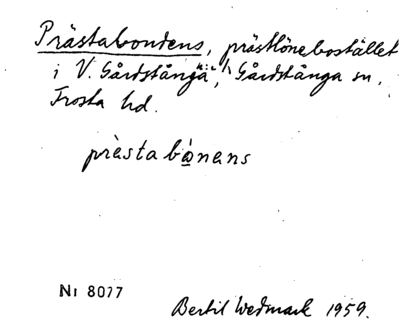 Prästabondens, prästlönebostället
i V. Gårdstånga, Gårdstånga sn,
Frosta hd.
prästabånens
Nr 8077
Bertil Wedmark 1959.